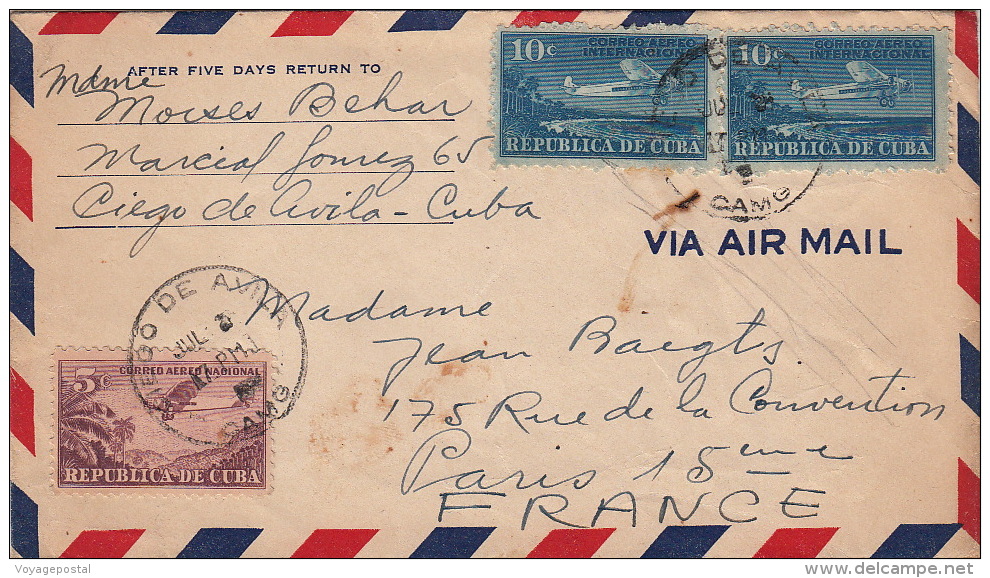 AFTER FIVE DAYS RETURN TO
Mdme
Moises Behar
Marcial Gomez 65
Ciego de Avila - Cuba
10c CORREO AEREO INTERNACIONAL
REPUBLICA DE CUBA
10c CORREO AEREO INTERNACIONAL
REPUBLICA DE CUBA
CAMG
VIA AIR MAIL
DE AVILA
JUL
PM
CAMG
5c
CORREO AEREO NACIONAL
REPUBLICA DE CUBA
Madame
Jean
175 Rue de la Convention
Paris 15eme
FRANCE
Voyagepostal
delcampe.net